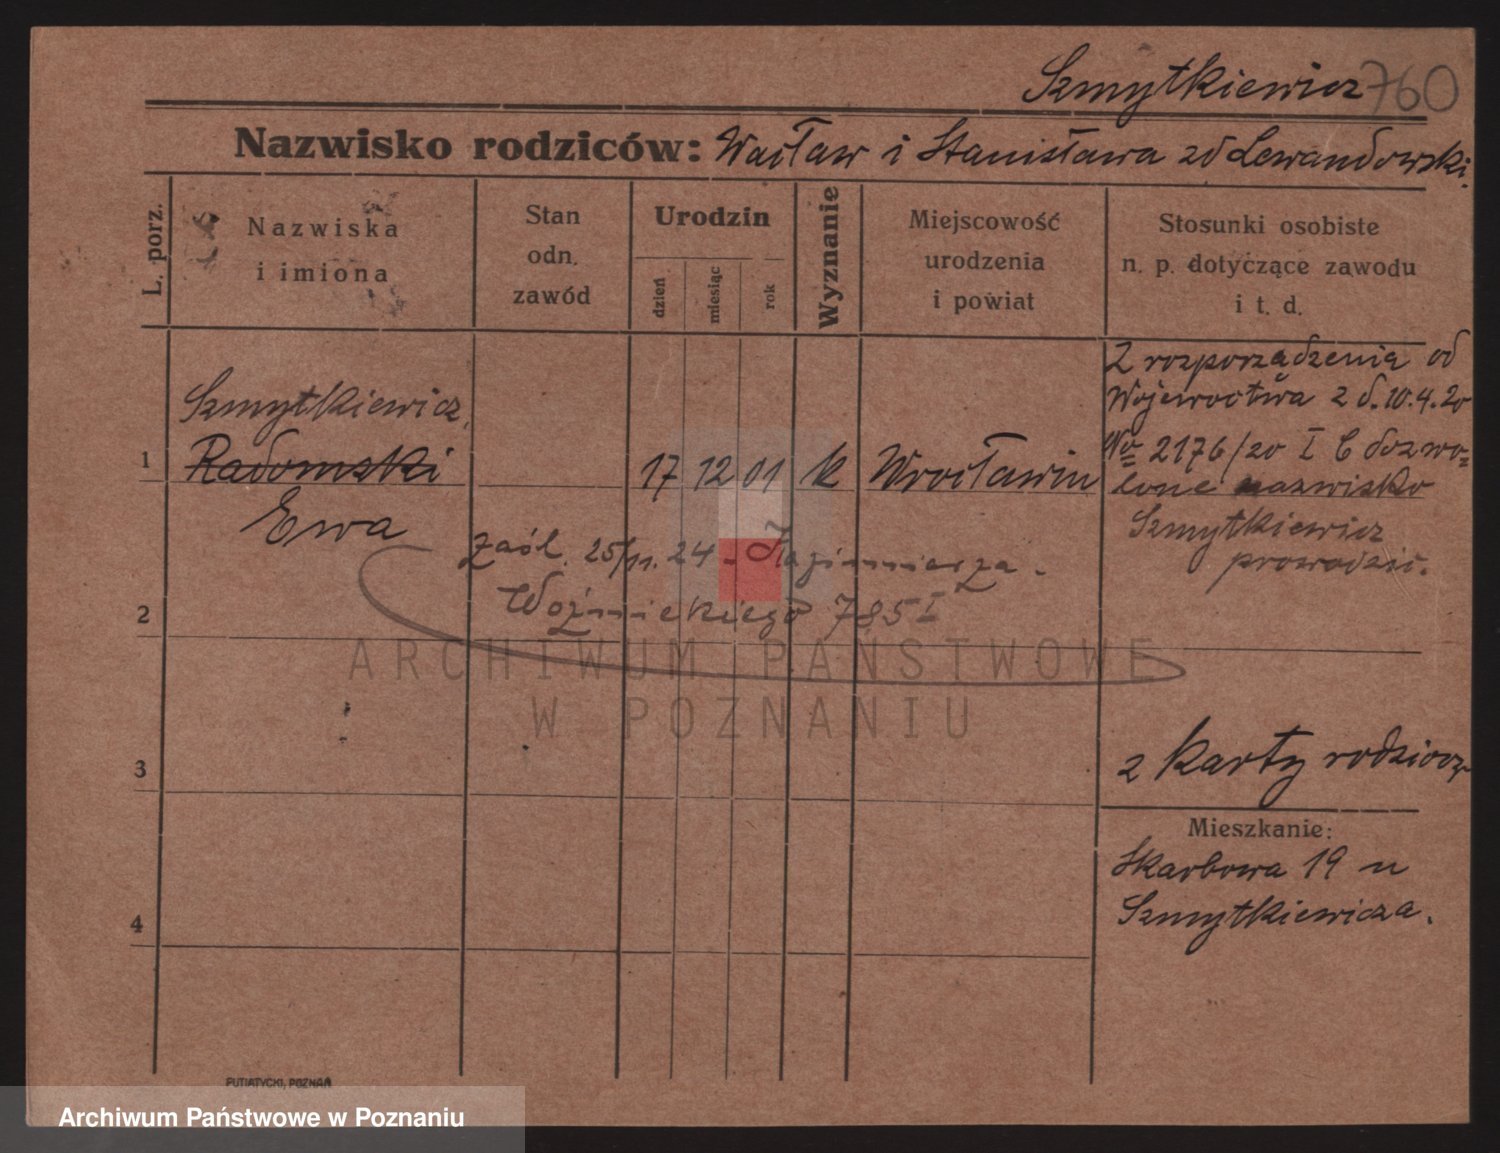 Szmytkiewicz 760
Nazwisko rodziców: Wacław i Stanisława zd Lewandowski.
L. porz.
Nazwiska
i imiona
Stan
odn.
zawód
Urodzin
dzień
miesiąc
rok
Wyznanie
Miejscowość
urodzenia
i powiat
Stosunki osobiste
n. p. dotyczące zawodu
i t. d.
Szmytkiewicz
1 Radomski 17 12 01 k Wrocławiu
Ewa
Z rozporządzenia od
Wojewoctwa z d. 10.4.20
No 2176/20 I C dozwo=
lone nazwisko
Szmytkiewicz
prowadzić.
zaśl. 25/11. 24 - Kazimierza
Woźnickiego 785 I
2
ARCHIWUM PAŃSTWOWE
W POZNANIU
3
z Karty rodzicz
Mieszkanie:
Skarbowa 19 u
Szmytkiewicza.
4
PUTIATYCKI, POZNAŃ
Archiwum Państwowe w Poznaniu